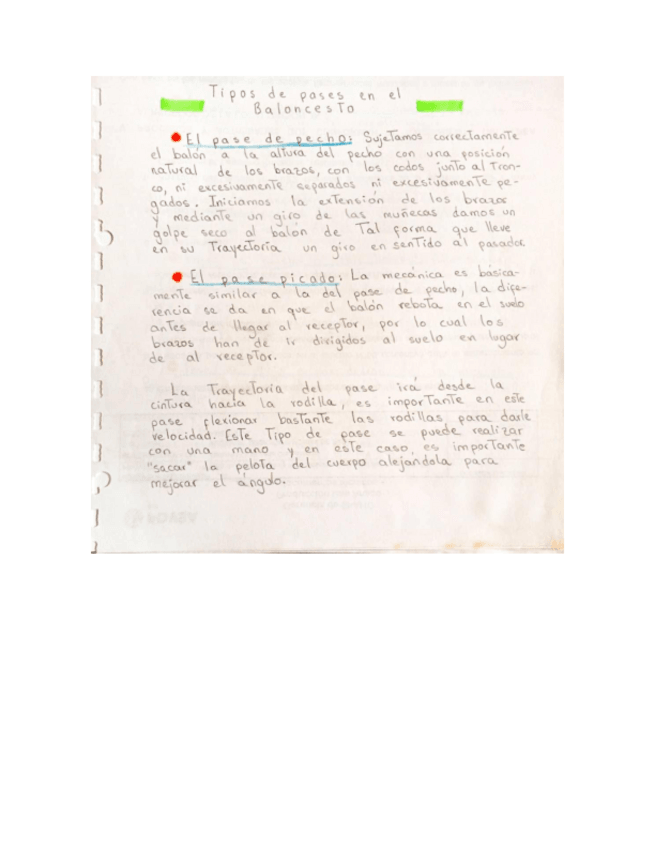 Tipos de pases en el
Baloncesto
El pase de pecho: Sujetamos correctamente
el balón a la altura del pecho con una posición
natural de los brazos, con los codos junto al tron-
co, ni excesivamente separados ni excesivamente pe-
gados. Iniciamos la extensión de los brazos
y mediante un giro de las muñecas damos un
golpe seco al balón de tal forma que lleve
en su trayectoria un giro en sentido al pasador
El pase picado: La mecánica es básica-
mente similar a la del pase de pecho, la dife-
rencia se da en que el balón rebota en el suelo
antes de llegar al receptor, por lo cual los
brazos han de ir dirigidos al suelo en lugar
de al receptor.
La trayectoria del pase irá desde la
cintura hacia la rodilla, es importante en este
pase flexionar bastante las rodillas para darle
velocidad. Este tipo de pase se puede realizar
con una mano y en este caso, es importante
"sacar" la pelota del cuerpo alejándola para
mejorar el ángulo.